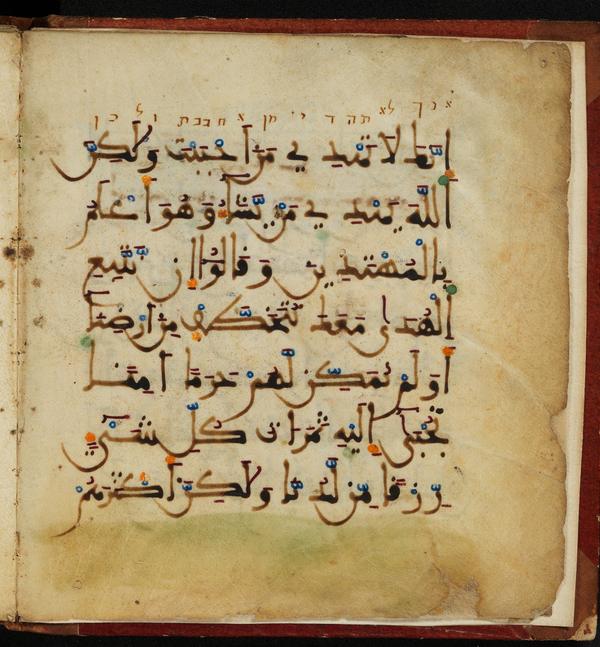 א נך לא תה ד י מן א חבבת ול כן
إِنَّكَ لَا تَهْدِي مَنْ أَحْبَبْتَ وَلَكِنَّ
اللَّهَ يَهْدِي مَنْ يَشَاءُ وَهُوَ أَعْلَمُ
بِالْمُهْتَدِينَ وَقَالُوا إِنْ نَتَّبِعِ
الْهُدَى مَعَكَ نُتَخَطَّفْ مِنْ أَرْضِنَا
أَوَلَمْ نُمَكِّنْ لَهُمْ حَرَمًا آمِنًا
تُجْبَى إِلَيْهِ ثَمَرَاتُ كُلِّ شَيْءٍ
رِزْقًا مِنْ لَدُنَّا وَلَكِنَّ أَكْثَرَهُمْ